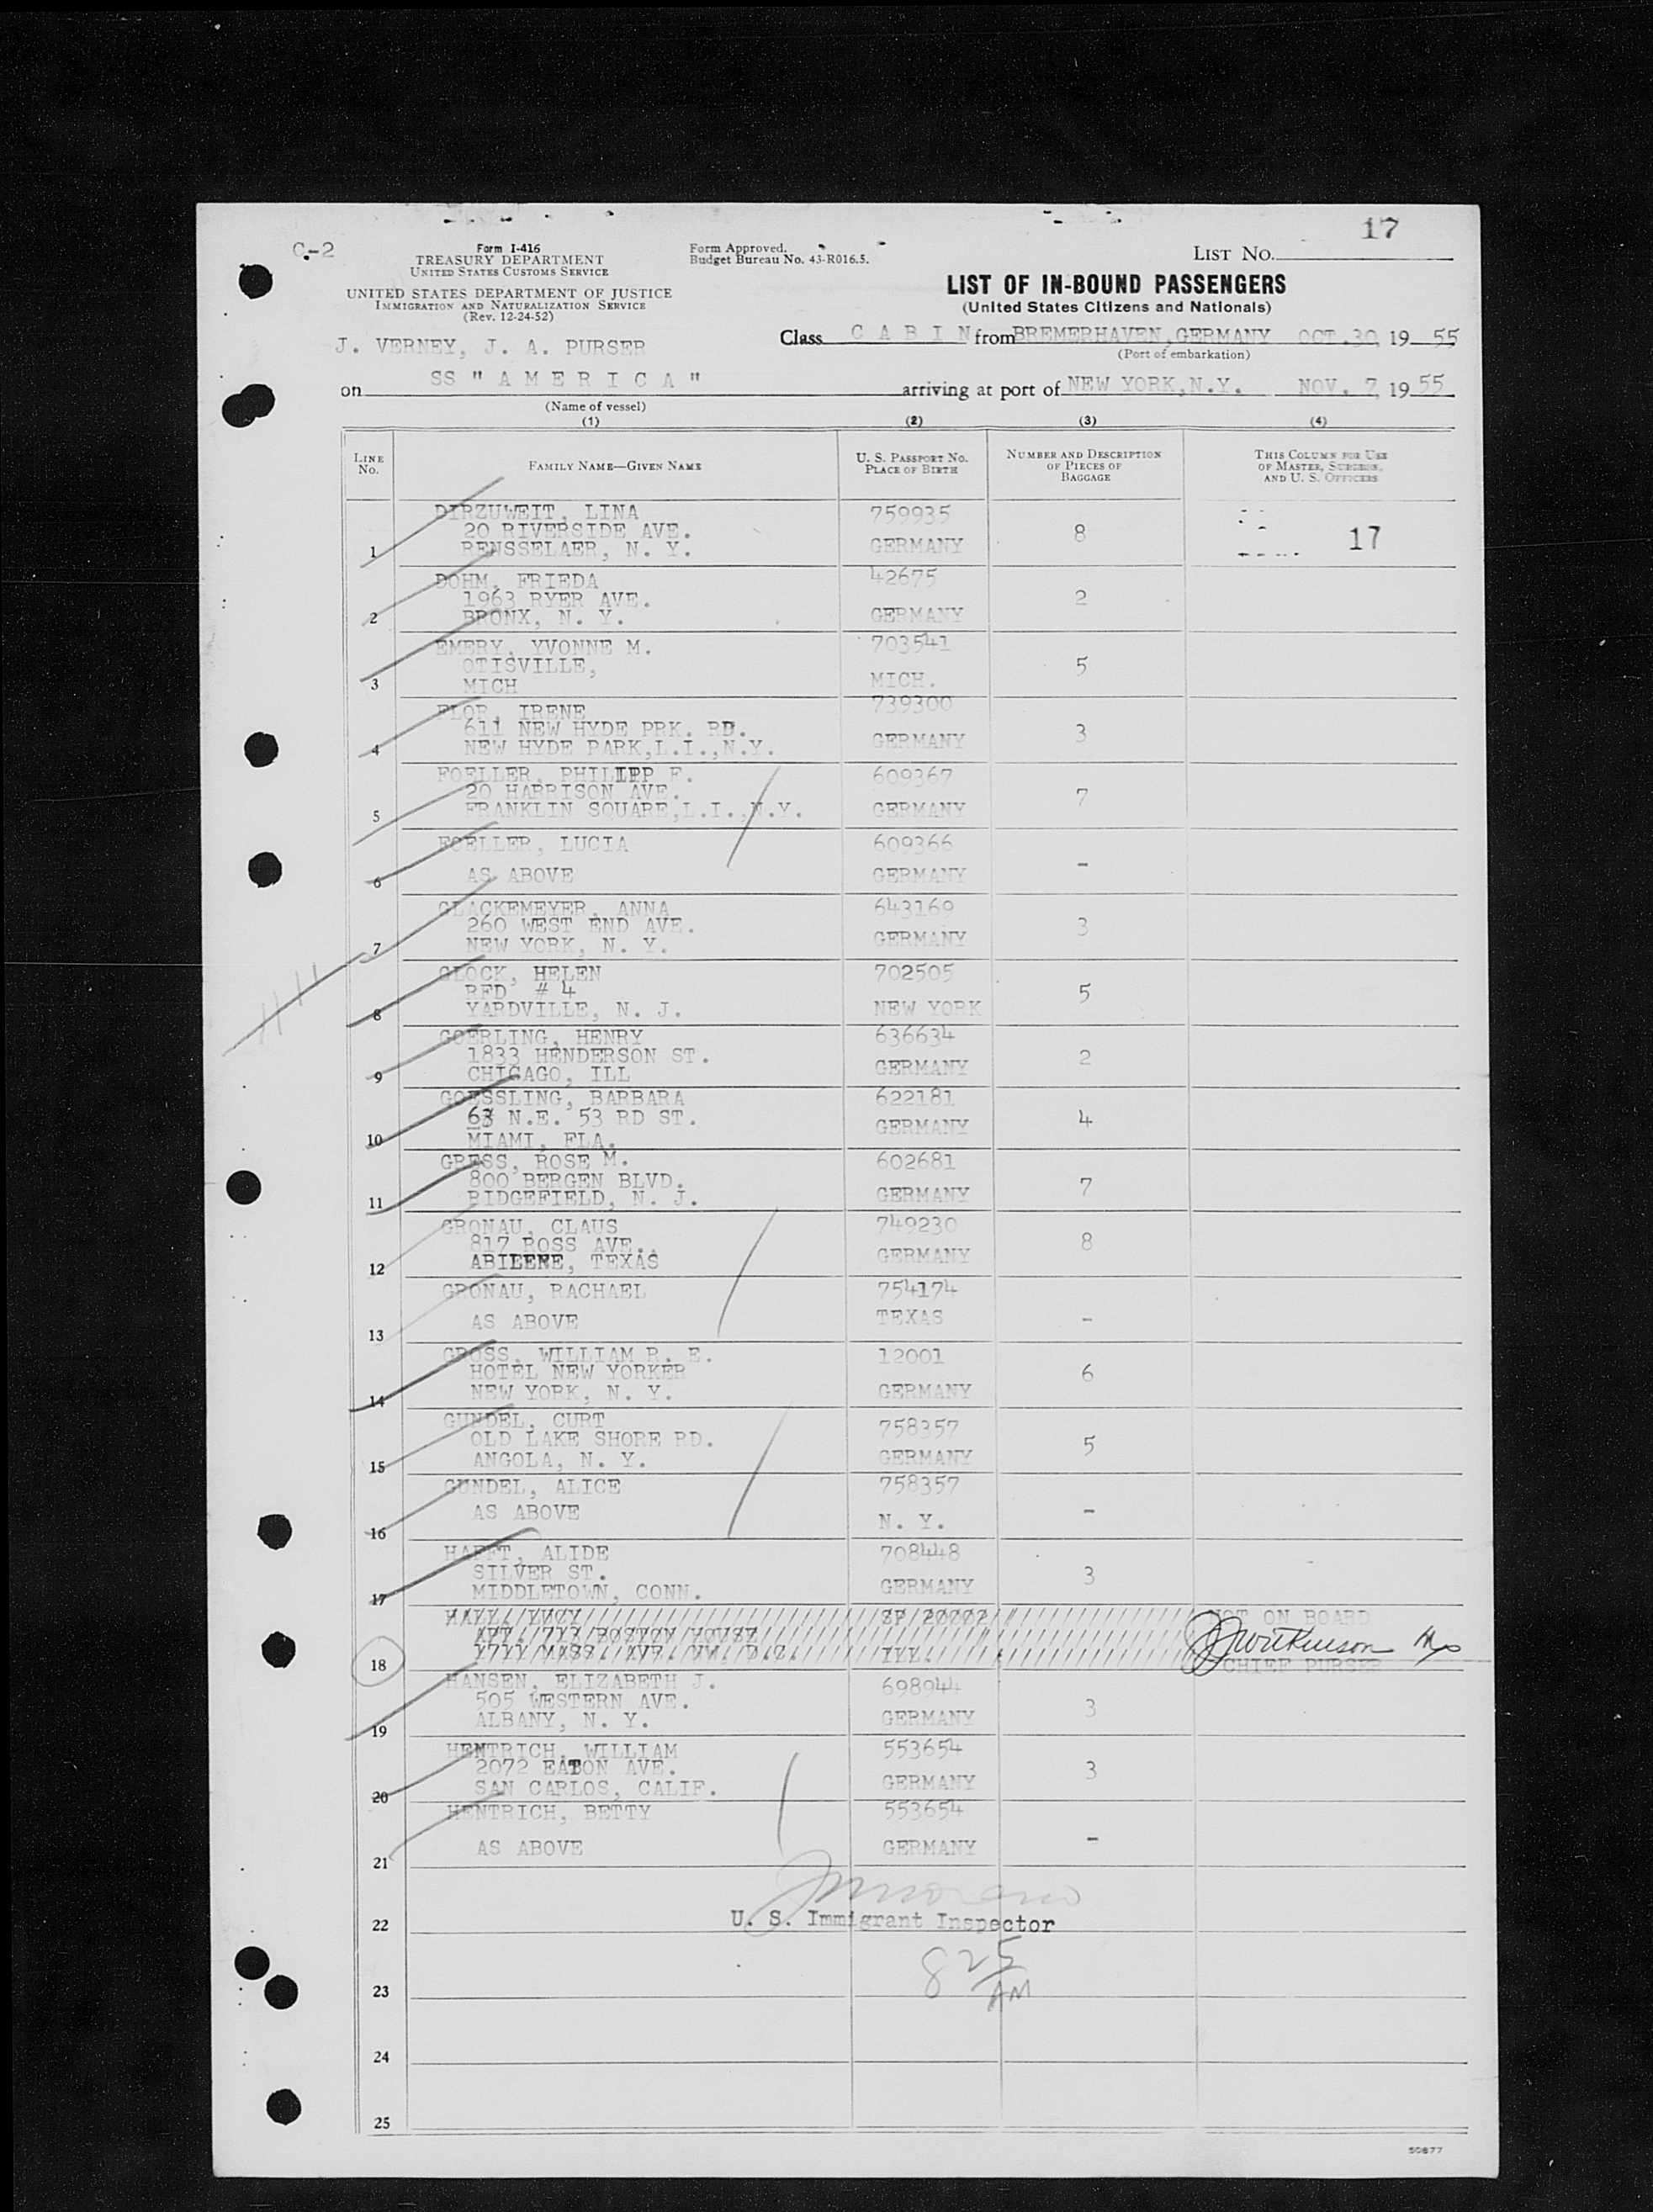 17
C-2
Form I-416
TREASURY DEPARTMENT
UNITED STATES CUSTOMS SERVICE
UNITED STATES DEPARTMENT OF JUSTICE
IMMIGRATION AND NATURALIZATION SERVICE
(Rev. 12-24-52)
Form Approved.
Budget Bureau No. 43-R016.5.
LIST NO.
LIST OF IN-BOUND PASSENGERS
(United States Citizens and Nationals)
J. VERNEY, J. A. PURSER
Class C A B I N from BREMERHAVEN, GERMANY OCT.30, 19 55
(Port of embarkation)
on SS "A M E R I C A" arriving at port of NEW YORK, N.Y. NOV. 7, 19 55
(Name of vessel)
(1) (2) (3) (4)
LINE No. FAMILY NAME—GIVEN NAME U. S. PASSPORT NO. PLACE OF BIRTH NUMBER AND DESCRIPTION OF PIECES OF BAGGAGE THIS COLUMN FOR USE OF MASTER, SURGEON, AND U. S. OFFICERS
DIRZUWEIT, LINA 759935
20 RIVERSIDE AVE. 8 17
1 RENSSELAER, N. Y. GERMANY
DOHM, FRIEDA 42675
1963 RYER AVE. 2
2 BRONX, N. Y. GERMANY
EMERY, YVONNE M. 703541
OTISVILLE, 5
3 MICH MICH.
FLOR, IRENE 739300
611 NEW HYDE PRK. RD. 3
4 NEW HYDE PARK, L.I., N.Y. GERMANY
FOELLER, PHILIPP F. 609367
20 HARRISON AVE. 7
5 FRANKLIN SQUARE, L.I., N.Y. GERMANY
FOELLER, LUCIA 609366
6 AS ABOVE GERMANY -
GLACKEMEYER, ANNA 643169
260 WEST END AVE. 3
7 NEW YORK, N. Y. GERMANY
GLOCK, HELEN 702505
RFD # 4 5
8 YARDVILLE, N. J. NEW YORK
GOERLING, HENRY 636634
1833 HENDERSON ST. 2
9 CHICAGO, ILL GERMANY
GOESSLING, BARBARA 622181
63 N.E. 53 RD ST. 4
10 MIAMI, FLA. GERMANY
GRESS, ROSE M. 602681
800 BERGEN BLVD. 7
11 RIDGEFIELD, N. J. GERMANY
GRONAU, CLAUS 749230
817 ROSS AVE., 8
12 ABILENE, TEXAS GERMANY
GRONAU, RACHAEL 754174
13 AS ABOVE TEXAS -
GROSS, WILLIAM R. E. 12001
HOTEL NEW YORKER 6
14 NEW YORK, N. Y. GERMANY
GUNDEL, CURT 758357
OLD LAKE SHORE RD. 5
15 ANGOLA, N. Y. GERMANY
GUNDEL, ALICE 758357
AS ABOVE -
16 N. Y.
HAFFT, ALIDE 708448
SILVER ST. 3
17 MIDDLETOWN, CONN. GERMANY
HALL, LUCY SP 20002 NOT ON BOARD
APT. 713 BOSTON HOUSE JWilkinson
18 1711 MASS. AVE. NW. D.C. ILL. CHIEF PURSER
HANSEN, ELIZABETH J. 698944
505 WESTERN AVE. 3
19 ALBANY, N. Y. GERMANY
HENTRICH, WILLIAM 553654
2072 EATON AVE. 3
20 SAN CARLOS, CALIF. GERMANY
HENTRICH, BETTY 553654
21 AS ABOVE GERMANY -
22 U. S. Immigrant Inspector
825 AM
23
24
25
50877